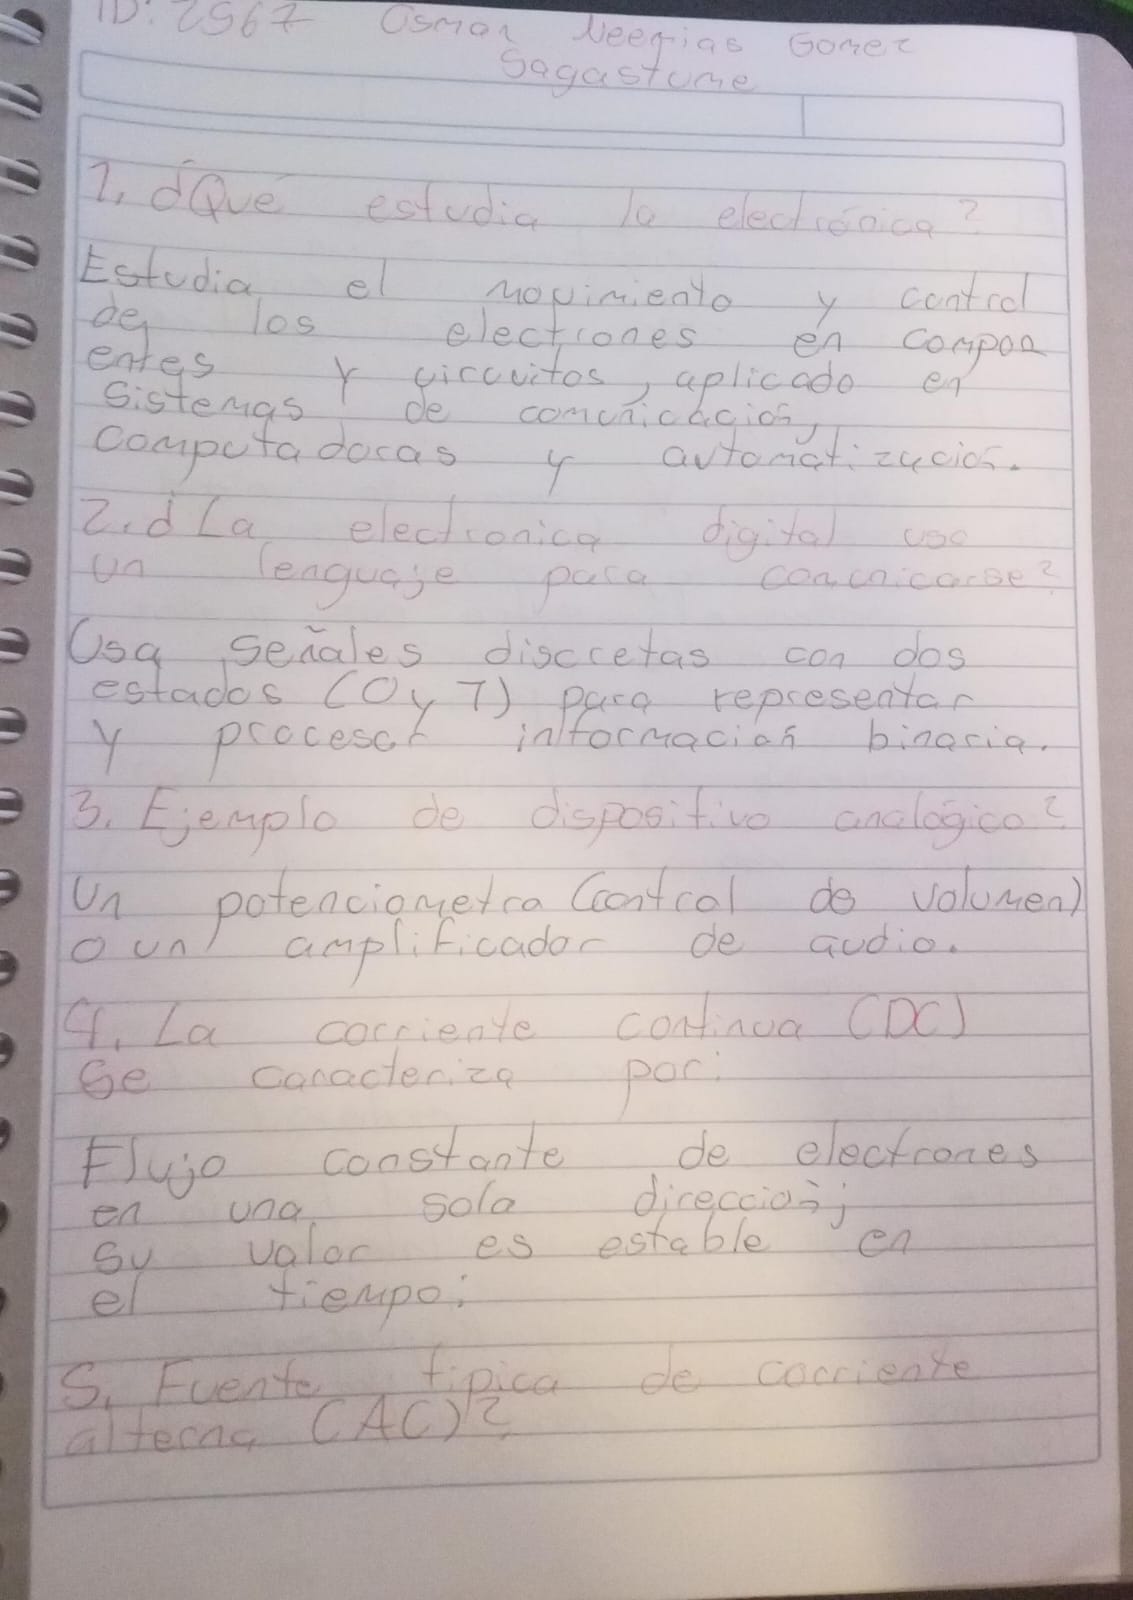 ID: 2567 Osman Neemias Gomez
Sagastume
1. ¿Qué estudia la electrónica?
Estudia el movimiento y control
de los electrones en compon
entes y circuitos, aplicado en
sistemas de comunicación,
computadoras y automatización.
2. ¿La electronica digital usa
un lenguaje para comunicarse?
Usa señales discretas con dos
estados (0 y 1) para representar
y procesar información binaria.
3. Ejemplo de dispositivo analógico?
Un potenciometro (control de volumen)
o un amplificador de audio.
4. La corriente continua (DC)
se caracteriza por:
Flujo constante de electrones
en una sola dirección;
su valor es estable en
el tiempo;
5. Fuente típica de corriente
alterna (AC)?